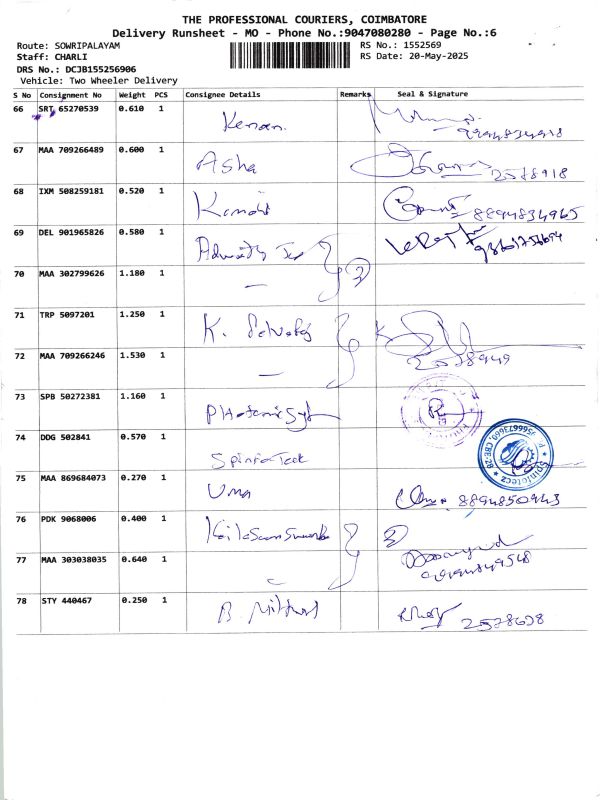 THE PROFESSIONAL COURIERS, COIMBATORE
Delivery Runsheet - MO - Phone No.:9047080280 - Page No.:6
Route: SOWRIPALAYAM RS No.: 1552569
Staff: CHARLI RS Date: 20-May-2025
DRS No.: DCJB155256906
Vehicle: Two Wheeler Delivery
S No Consignment No Weight PCS Consignee Details Remarks Seal & Signature
66 SRT 65270539 0.610 1 Kenan.
67 MAA 709266489 0.600 1 Asha 2578918
68 IXM 508259181 0.520 1 8894834965
69 DEL 901965826 0.580 1
70 MAA 302799626 1.180 1 — 2
71 TRP 5097201 1.250 1 K.
72 MAA 709266246 1.530 1 — 2578949
73 SPB 50272381 1.160 1
74 DDG 502841 0.570 1 SpinfoTeck
75 MAA 869684073 0.270 1 Uma 8894850943
76 PDK 9068006 0.400 1 2
77 MAA 303038035 0.640 1
78 STY 440467 0.250 1 B. 2578698